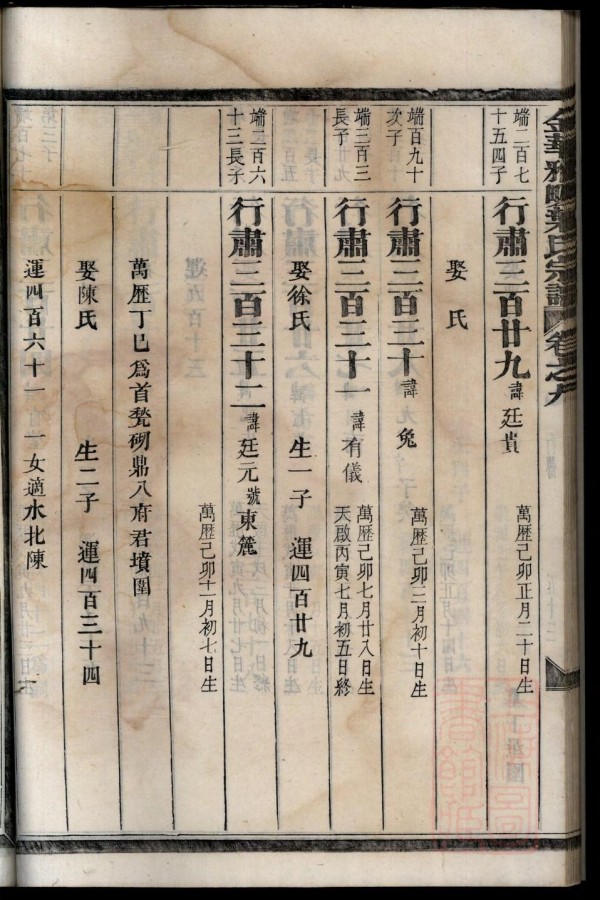 金華雅畈葉氏宗譜 卷之九
端二百七
十五四子
行肅三百廿九 諱 廷貴
萬歷己卯正月二十日生
娶 氏
端百九十
次子
行肅三百三十 諱 兔
萬歷己卯三月初十日生
端三百三
長子
行肅三百三十一 諱 有儀
萬歷己卯七月廿八日生
天啟丙寅七月初五日終
娶徐氏 生一子 運四百廿九
端二百六
十三長子
行肅三百三十二 諱 廷元 號 東麓
萬歷己卯十一月初七日生
萬歷丁巳爲首甃砌鼎八府君墳圍
娶陳氏 生二子 運四百三十四
運四百六十一 一女適水北陳